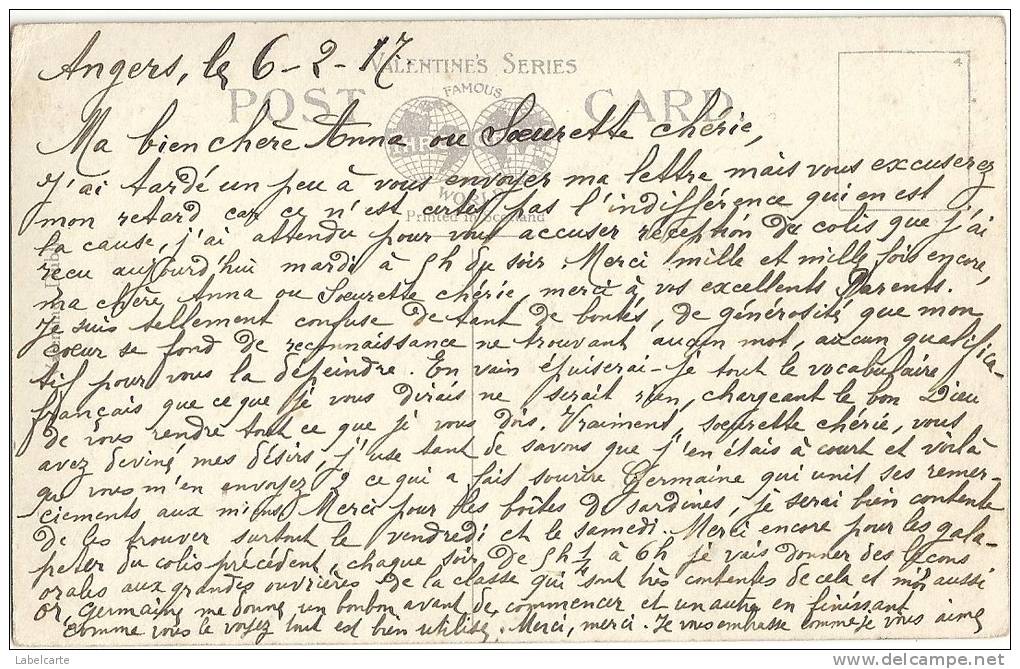 Angers, le 6-2-17.
VALENTINE'S SERIES
POST CARD
FAMOUS
WORLD
Printed in Scotland
Ma bien chère Anna ou Sœurette chérie,
J'ai tardé un peu à vous envoyer ma lettre mais vous excuserez
mon retard car ce n'est certes pas l'indifférence qui en est
la cause, j'ai attendu pour vous accuser réception du colis que j'ai
reçu aujourd'hui mardi à 5h du soir. Merci mille et mille fois encore,
ma chère Anna ou Sœurette chérie, merci à vos excellents Parents.
Je suis tellement confuse de tant de bontés, de générosité que mon
cœur se fond de reconnaissance ne trouvant aucun mot, aucun qualifica-
tif pour vous la dépeindre. En vain épuiserai-je tout le vocabulaire
français que ce que je vous dirais ne serait rien, chargeant le bon Dieu
de vous rendre tout ce que je vous dois. Vraiment, sœurette chérie, vous
avez deviné mes désirs, j'use tant de savons que j'en étais à court et voilà
que vous m'en envoyez 2 ce qui a fait sourire Germaine qui unit ses remer-
ciements aux miens. Merci pour les boîtes de sardines, je serai bien contente
de les trouver surtout le vendredi et le samedi. Merci encore pour les gala-
peter du colis précédent, chaque soir de 5h ½ à 6h je vais donner des leçons
orales aux grandes ouvrières de la classe qui sont très contentes de cela et moi aussi
or, Germaine me donne un bonbon avant de commencer et un autre en finissant
comme vous le voyez tout est bien utilisé. Merci, merci. Je vous embrasse comme je vous aime
Labelcarte
www.delcampe.net